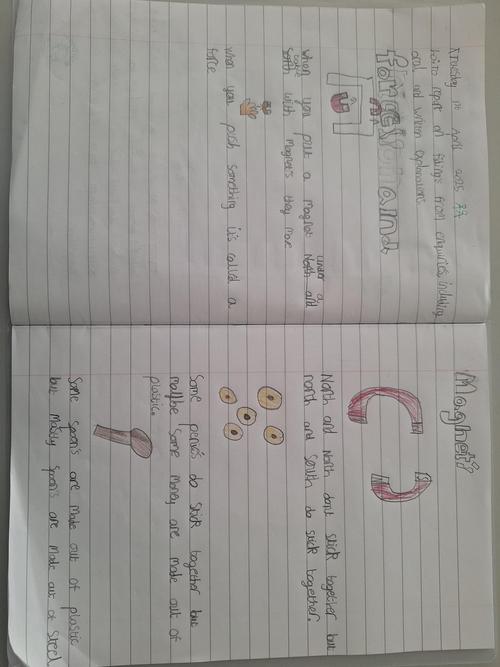 Tuesday 1st April 2025
to report on fidings from enquiries, including
oral and written explanations
forces
when you put a magnet under a
table North and
South with magnets they move
when you push something it's called a
force
Magnets
North and North dont stick together but
north and South do stick together.
Some penies do stick together but
maybe some money are made out of
plastic.
Some Spoon's are made out of plastic
but mostly spoon's are made out of steel